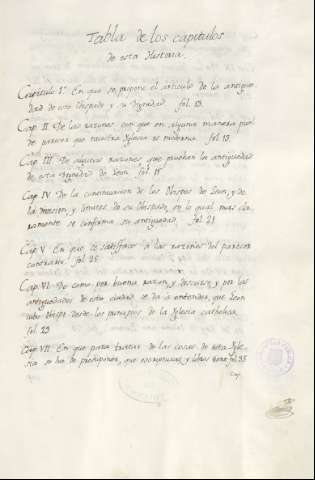 Tabla de los capitulos
de esta Historia.
Capitulo 1º En que se propone el articulo de la antigue
dad de este Obispado y su dignidad. fol. 13.
Cap. II De las razones con que en alguna manera pue
de parecer que nuestra Iglesia es moderna. fol. 13.
Cap. III De algunas razones que prueban la antiguedad
de esta dignidad de Leon. fol. 15
Cap. IV De la continuacion de los Obispos de Leon, y de
la mencion, y limites de su Obispado, en lo qual mas cla
ramente se confirma su antiguedad. fol. 21
Cap. V En que se satisface a las razones del parecer
contrario. fol. 25
Cap. VI De como por buena razon, y discurso, y por las
antiguedades de esta ciudad se da a entender, que Leon
tubo Obispo desde los principios de la Iglesia catholica.
fol. 29
Cap. VII En que para tratar de las cosas de esta Igle
sia se han de presuponer, que escripturas, y libros tiene fol. 35
Cap.